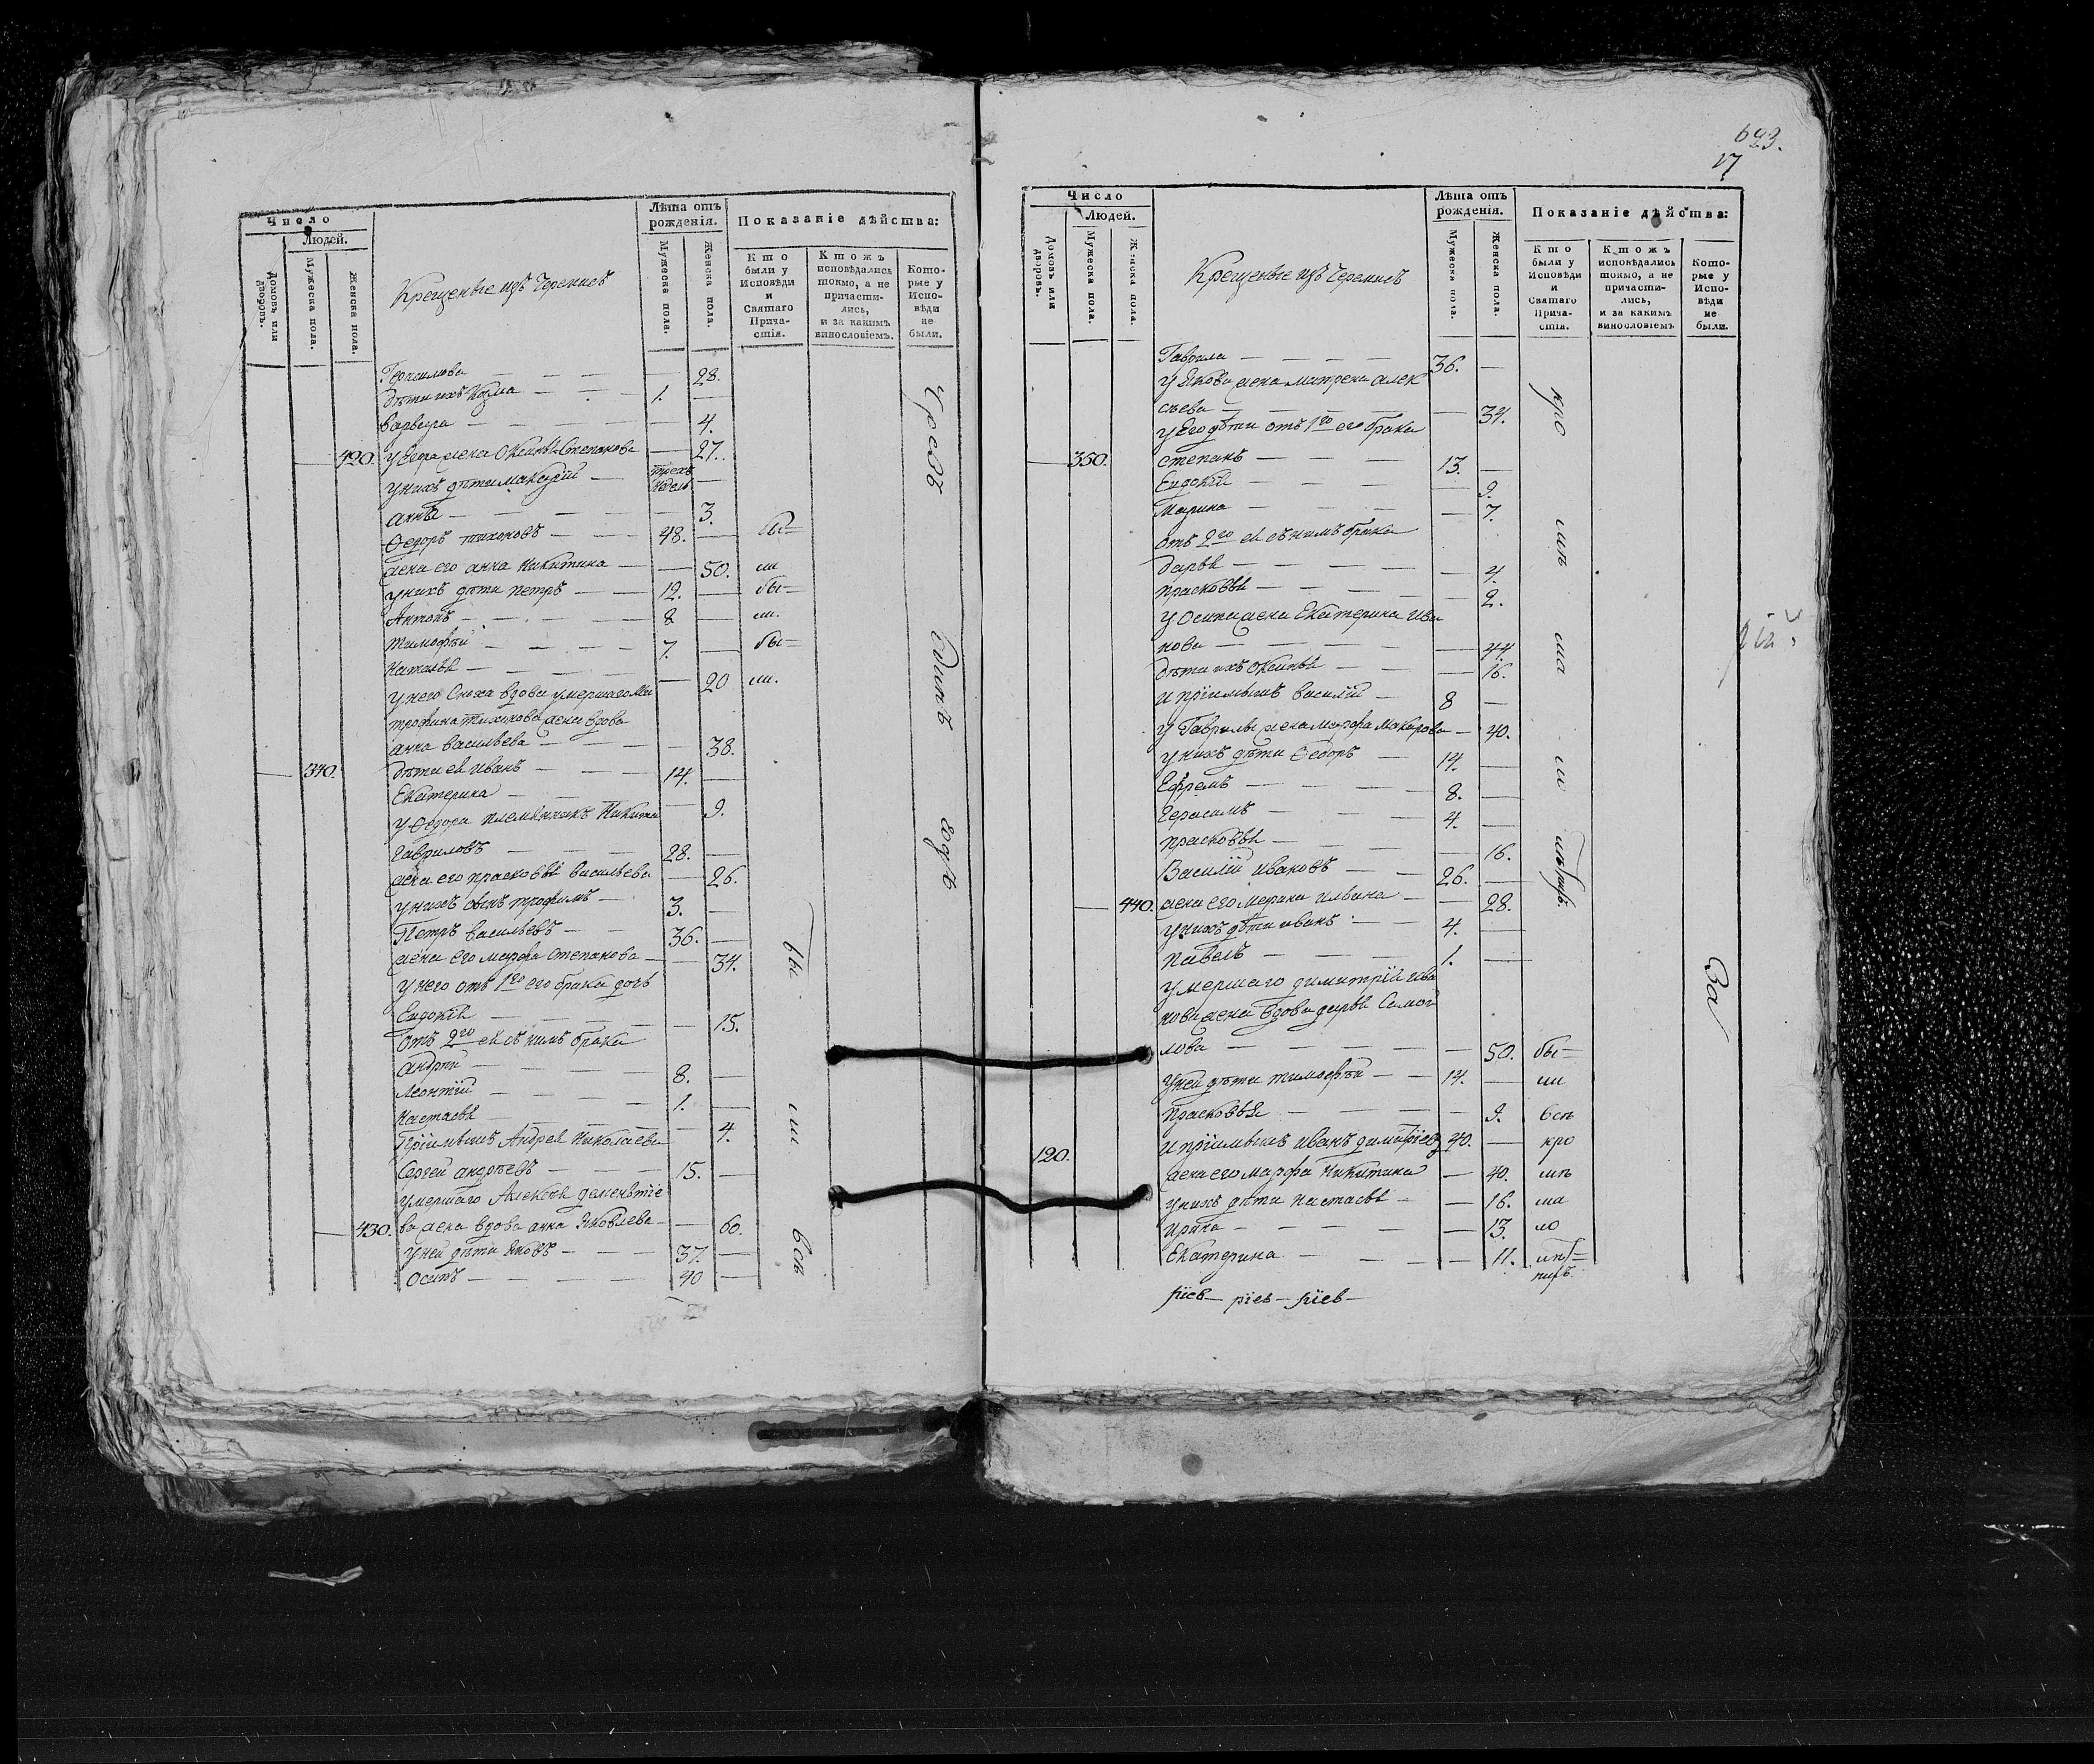 Число
Людей.
Домовъ или дворовъ.
Мужеска пола.
Женска пола.
Крещеные изъ Черемисъ
Лѣта отъ рожденія.
Мужеска пола.
Женска пола.
Показаніе дѣйства:
Кто были у Исповѣди и Святаго Причастія.
Ктожъ исповѣдались токмо, а не причастились, и за какимъ винословіемъ.
Которые у Исповѣди не были.
28.
дѣти ихъ Козма — — 1. —
варвара — — — 4.
420. у Егора жена Оксинья Степанова — 27.
у нихъ дѣти — трехъ недель —
анна — — — 3.
Ѳедоръ тихоновъ — — 48. — бы=
жена его анна Никитина — — 50. ли
у нихъ дѣти петръ — — 12. — бы=
Антонъ — — 8 — ли.
тимофѣй — — — 7. — бы=
Наталья — — 20 ли.
у него Сноха вдова умершаго Ми
трофана тихонова жена вдова
анна васильева — — — 38.
340. дѣти ея иванъ — — 14. —
Екатерина — — — 9.
у Ѳедора племянникъ Никита
гавриловъ — — 28. —
жена его прасковья васильева — 26.
у нихъ сынъ трофимъ — 3. —
Петръ васильевъ — — 36. —
жена его марфа степанова — — 34.
у него отъ 1го его брака дочь
Евдокія — — — 15.
отъ 2го ея съ нимъ брака
андрей — — — 8. —
леонтій — — — 1. —
настасья — — — 4.
Пріимышъ Андрея Николаева
Сергей андреевъ — — 15. —
умершаго Алексея дементіе
430. ва жена вдова анна Яковлева — — 60.
у ней дѣти Яковъ — — 37. —
осипъ — — — 40 —
бы
ли
всѣ
693.
17
Число
Людей.
Домовъ или дворовъ.
Мужеска пола.
Женска пола.
Крещеные изъ Черемисъ
Лѣта отъ рожденія.
Мужеска пола.
Женска пола.
Показаніе дѣйства:
Кто были у Исповѣди и Святаго Причастія.
Ктожъ исповѣдались токмо, а не причастились, и за какимъ винословіемъ
Которые у Исповѣди не были.
Гаврила — — — 36. —
у Якова жена матрена алек
сѣева — — — 34.
у Его дѣти отъ 1го его брака
350. степанъ — — — 13. —
Евдокія — — — 9.
Марина — — — 7.
отъ 2го ея съ нимъ брака
дарья — — — 4.
прасковья — — — 2.
у Осипа жена Екатерина ива
нова — — — 44.
дѣти ихъ оксинья — — 16.
и пріимышъ василій — 8 —
у Гаврилы жена марфа макарова — 40.
у нихъ дѣти Ѳедоръ — 14. —
Ефремъ — — — 8. —
герасимъ — — — 4. —
прасковья — — — 16.
Василій ивановъ — — 26. —
440. жена его марина ильина — — 28.
у нихъ дѣти иванъ — 4. —
павелъ — — — 1. —
умершаго димитрія ива
нова жена вдова дарья Самой
лова — — — 50. бы=
у ней дѣти тимофѣй — — 14. — ли
прасковья — — — 9. всѣ
120. и пріимышъ иванъ димитріевъ 40. — кро
жена его марфа Никитина — 40. мѣ
у нихъ дѣти настасья — — 16. ма
ирина — — — 13. ло
Екатерина — — — 11. лѣт=
кро
мѣ
ма
ло
За
ріев— ріев— ріев—